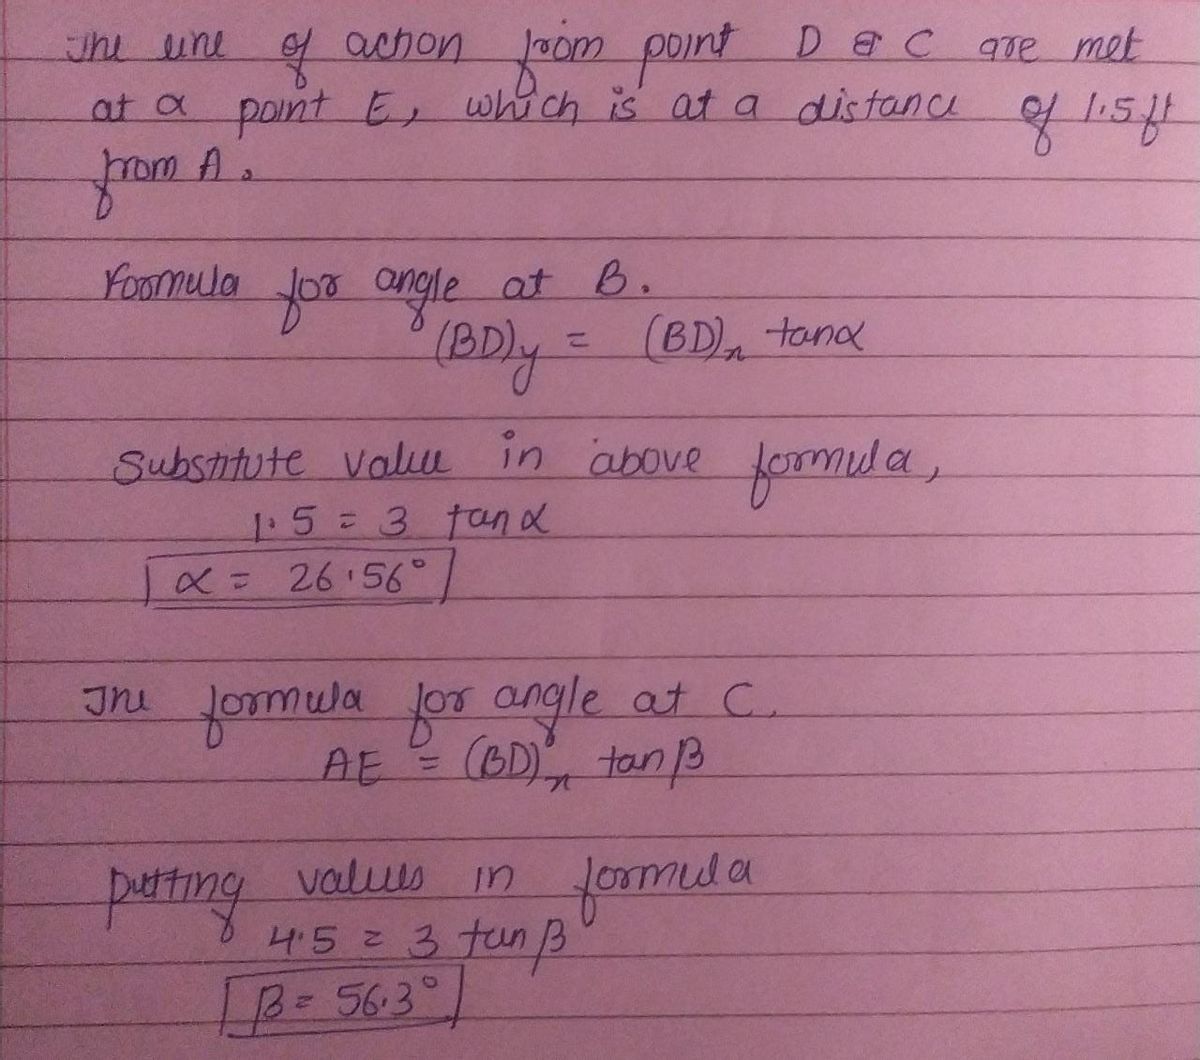 The line of action from point D & C are met
at a point E, which is at a distance of 1.5 ft
from A.
Formula for angle at B.
(BD)y = (BD)x tanα
Substitute value in above formula,
1.5 = 3 tanα
α = 26.56°
The formula for angle at C.
AE = (BD)x tanβ
putting values in formula
4.5 = 3 tanβ
β = 56.3°